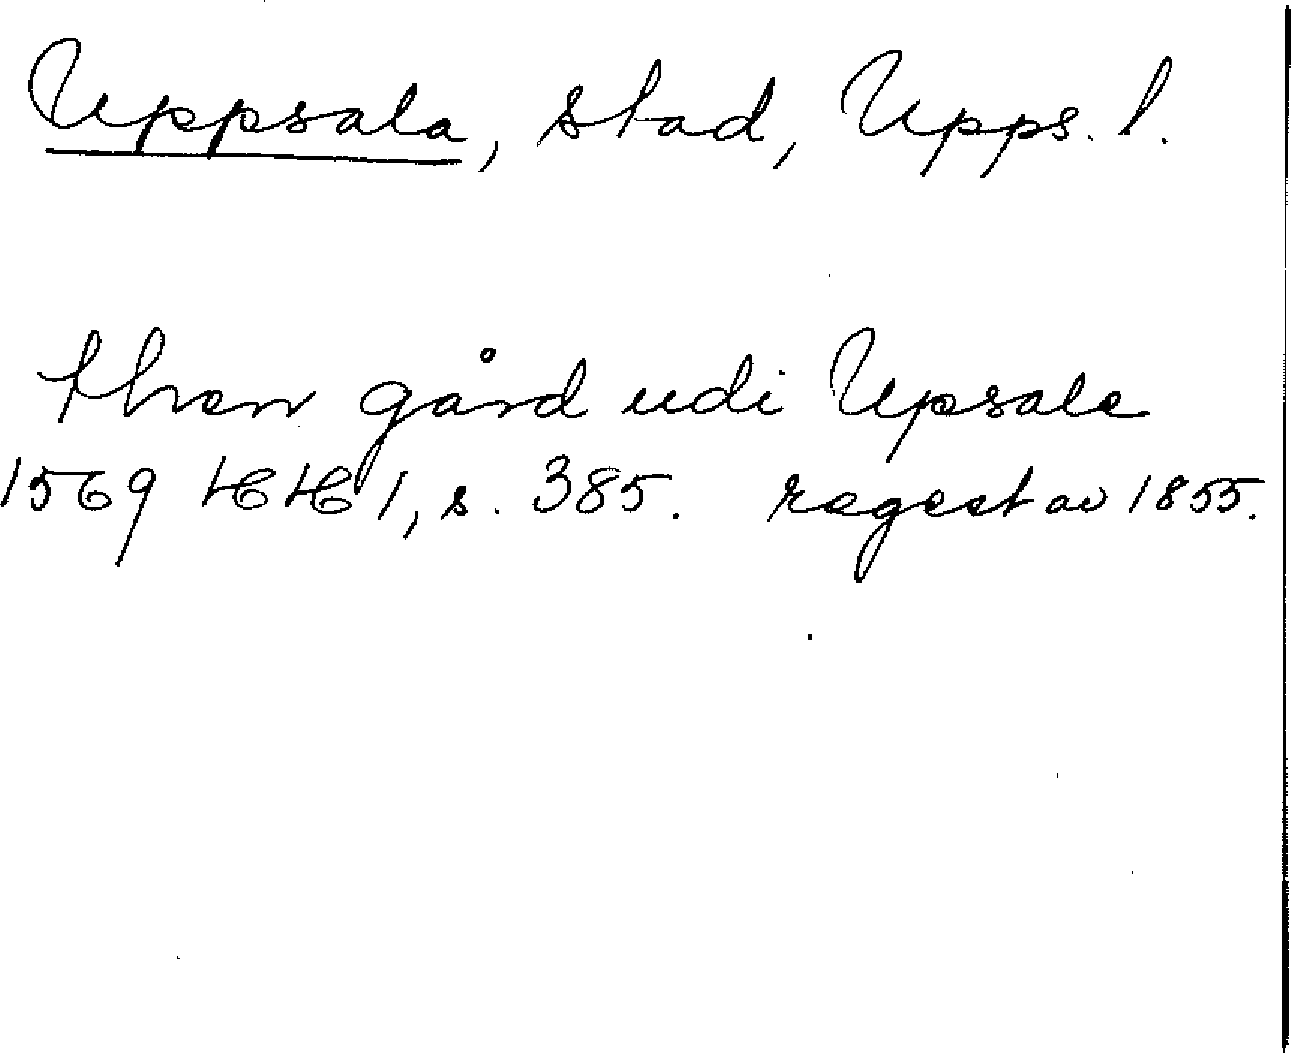 Uppsala, stad, Upps. l.
then gård udi Upsala
1569 HH 1, s. 385. regest av 1855.